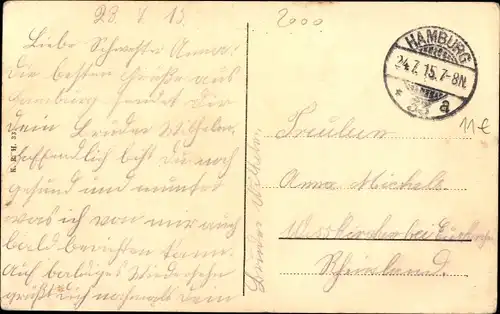 23. 7. 15.
Liebe Schwester Anna!
Die besten Grüße aus
Hamburg sendet Dir
dein Bruder Wilhelm.
Hoffendlich bist du noch
gesund und munter
was ich von mir auch
bald berichten kann.
Auf baldiges Wiedersehn
grüßt dich nochmals dein
Bruder Wilhelm.
2000
HAMBURG
24.7.15.7-8N.
* 33 a
11€
Fräulein
Anna Michels
bei Euskirchen
Rheinland.